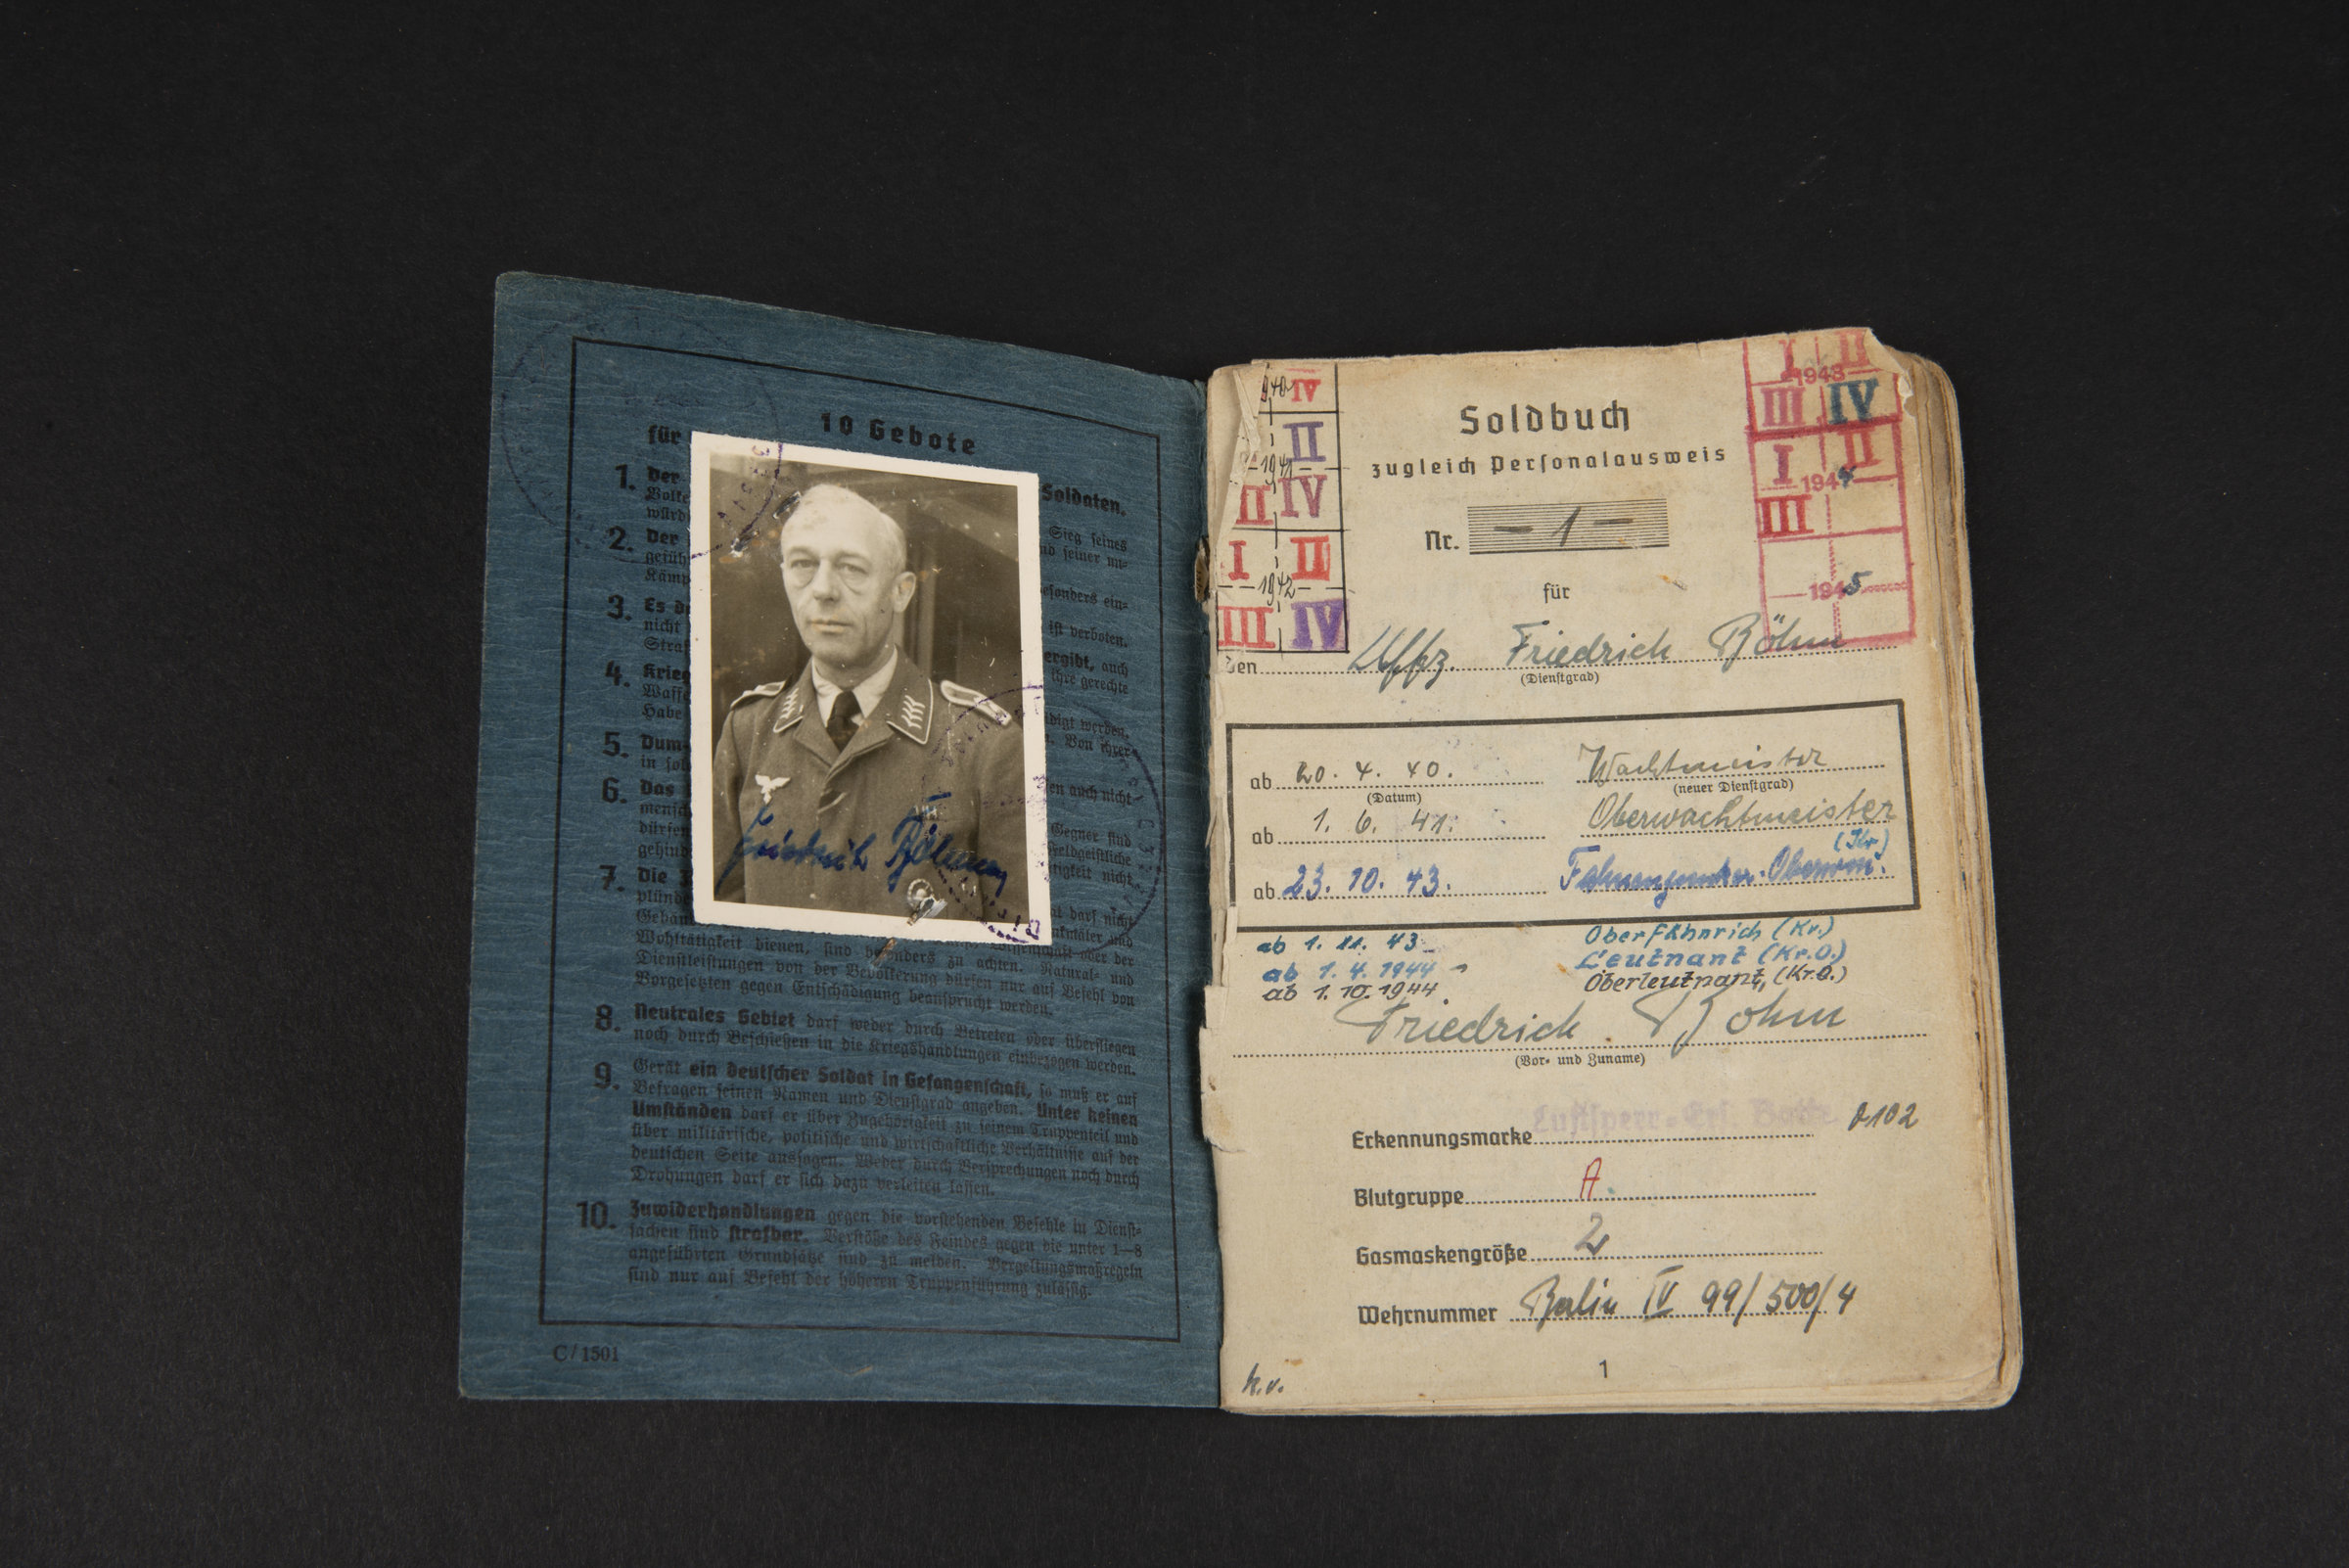 10 Gebote
für
1. Der Soldaten.
Volke Sieg seines
würd
2. Der
geführ
Kämp
3. Es besonders ein-
nicht ist verboten.
Straf
4. Krieg ergibt, auch
Waffe ihre gerechte
Habe
5. Dum- digt werden.
in sol Von ihrer
6. Das en auch nicht
mensch
dürfen Gegner sind
gehind Feldgeistliche
7. Die tigkeit nicht
plünde at darf nicht
Gebäu nkmäler und
Wohltätigkeit dienen, sind besonders zu achten. Natural- und
Dienstleistungen von der Bevölkerung dürfen nur auf Befehl von
Vorgesetzten gegen Entschädigung beansprucht werden.
8. Neutrales Gebiet darf weder durch Betreten oder Überfliegen
noch durch Beschießen in die Kriegshandlungen einbezogen werden.
9. Gerät ein deutscher Soldat in Gefangenschaft, so muß er auf
Befragen seinen Namen und Dienstgrad angeben. Unter keinen
Umständen darf er über Zugehörigkeit zu seinem Truppenteil und
über militärische, politische und wirtschaftliche Verhältnisse auf der
deutschen Seite aussagen. Weder durch Versprechungen noch durch
Drohungen darf er sich dazu verleiten lassen.
10. Zuwiderhandlungen gegen die vorstehenden Befehle in Dienst-
sachen sind strafbar. Verstöße des Feindes gegen die unter 1–8
angeführten Grundsätze sind zu melden. Vergeltungsmaßregeln
sind nur auf Befehl der höheren Truppenführung zulässig.
C/1501
Friedrich Böhm
IV
II
1941
II IV
I II
1942
III IV
I II
1943
III IV
I II
1944
III
1945
Soldbuch
zugleich Personalausweis
Nr. – 1 –
für
den Uffz. Friedrich Böhm
(Dienstgrad)
ab 20. 4. 40. Wachtmeister
(Datum) (neuer Dienstgrad)
ab 1. 6. 41. Oberwachtmeister
(Kr.)
ab 23. 10. 43. Fahnenjunker-Oberwm.
ab 1. 11. 43 Oberfähnrich (Kr.)
ab 1. 4. 1944 Leutnant (Kr.O.)
ab 1. 10. 1944. Oberleutnant, (Kr.O.)
Friedrich Böhm
(Vor- und Zuname)
Luftsperr-Ers. Battr.
Erkennungsmarke 0102
Blutgruppe A.
Gasmaskengröße 2
Wehrnummer Berlin IV 99/500/4
k.v.
1